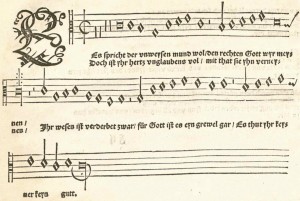 Es spricht der unweysen mund wol / den rechten Gott wyr meys
Doch ist yhr hertz unglaubens vol / mit that sie yhn verney /
nen / Ihr wesen ist verderbet zwar / für Gott ist es eyn grewel gar / Es thut yhr keys
nen /
ner keyn gutt.